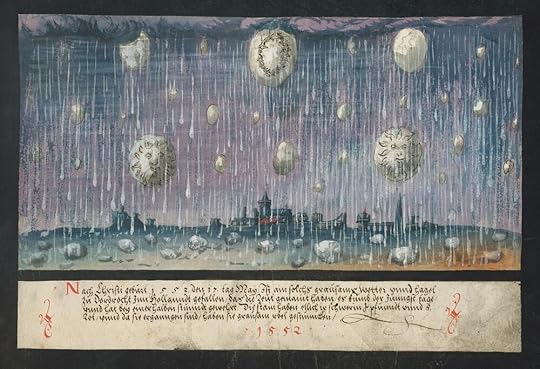 Nach Christi geburt 1 5 5 2 den 17 tag May Ist ain solchs grausams wetter vnnd hagel
zu Dordrecht Inn Hollanndt gefallen das die leut gemaint haben es kumb der Jüngst tage
vnnd hat bey einer halben stunndt geweret. Die stain haben etlich
vnnd da sie zerganngen sind / haben sie grausam vbel gestunncken /
1 5 5 2